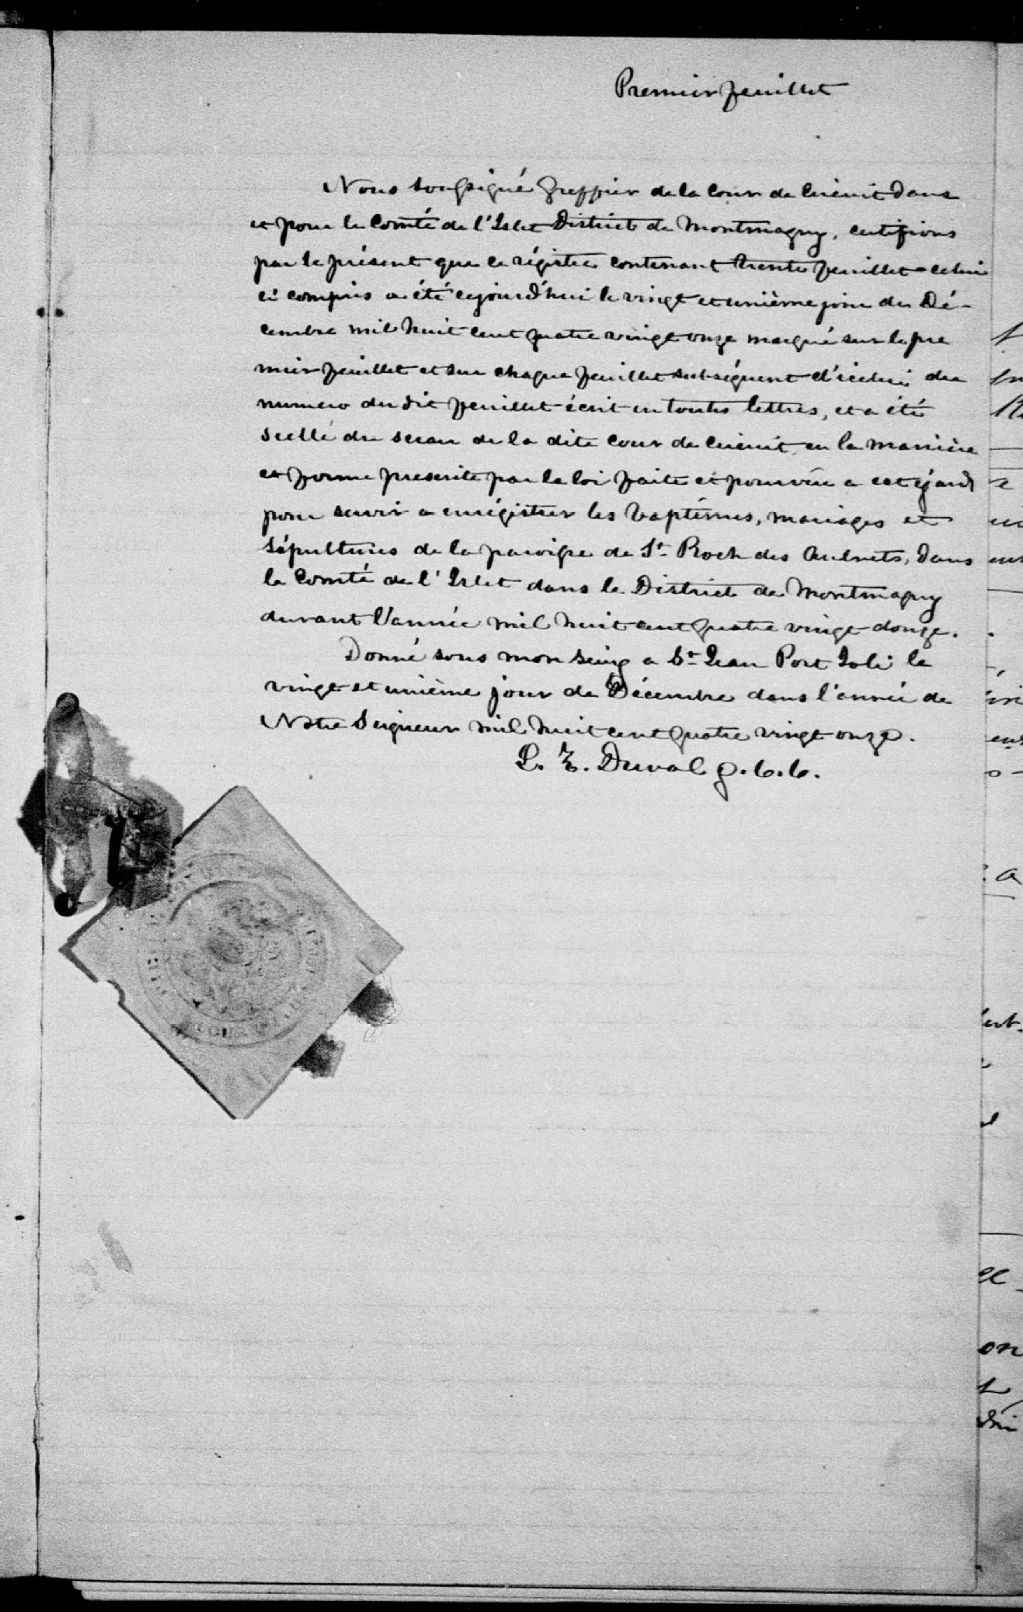 Premier feuillet
Nous soussigné Greffier de la Cour de Circuit dans
et pour le Comté de l'Islet District de Montmagny, certifions
par le présent que ce régistre contenant trente feuillet celui
ci compris a été cejourd'hui le vingt et unième jour du Dé-
cembre mil huit cent quatre vingt onze marqué sur le pre
mier feuillet et sur chaque feuillet subséquent d'icelui du
numero du dit feuillet écrit en toutes lettres, et a été
scellé du sceau de la dite cour de circuit en la manière
et forme prescrite par la loi faite et pourvue a cet égard
pour servir a enrégistrer les baptêmes, mariages et
sépultures de la paroisse de St Roch des Aulnets, dans
le Comté de l'Islet dans le District de Montmagny
durant l'année mil huit cent quatre vingt douze.
Donné sous mon seing a St Jean Port Joli le
vingt et unième jour de Décembre dans l'année de
Notre Seigneur mil huit cent quatre vingt onze.
L. Z. Duval g.c.c.